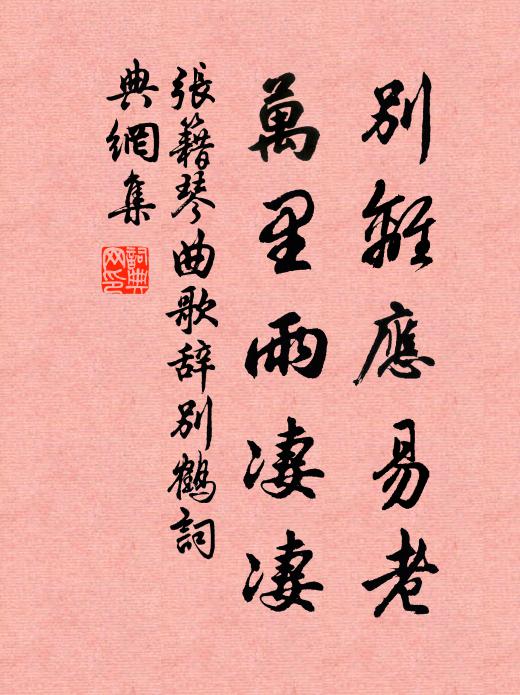 別離應易老
萬里雨凄凄
張籍琴曲歌辞別鶴詞
典網集
詞典
网印